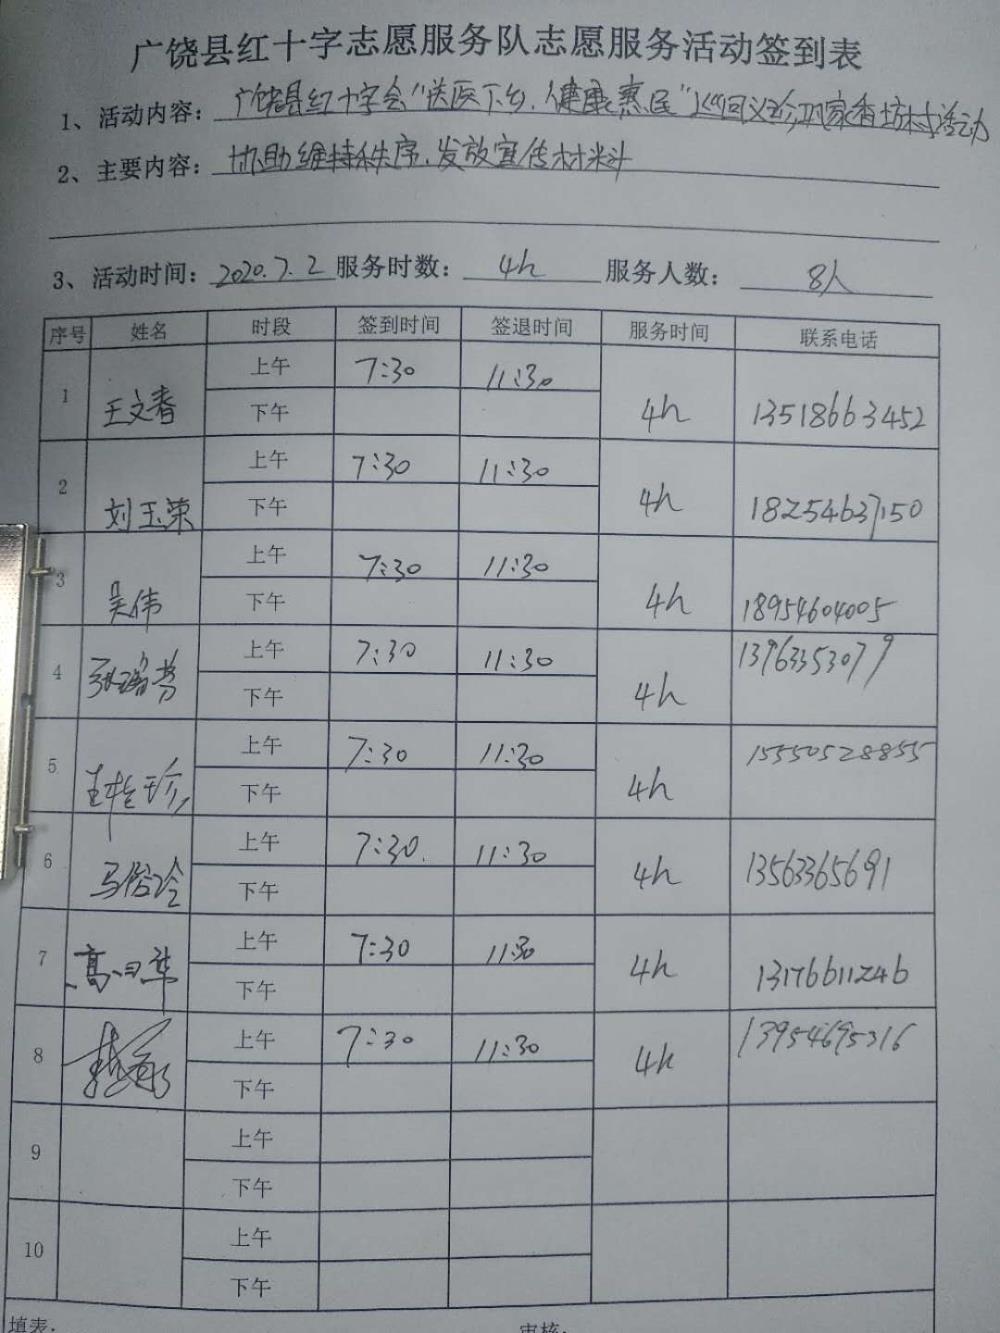 广饶县红十字志愿服务队志愿服务活动签到表
1、活动内容：广饶县红十字会“送医下乡，健康惠民”巡回义诊巩家香坊村活动
2、主要内容：协助维持秩序，发放宣传材料
3、活动时间：2020.7.2 服务时数：4h 服务人数：8人
序号 姓名 时段 签到时间 签退时间 服务时间 联系电话
1 王文春 上午 7:30 11:30 4h 13518663452
下午
2 刘玉荣 上午 7:30 11:30 4h 18254637150
下午
3 吴伟 上午 7:30 11:30 4h 18954604005
下午
4 上午 7:30 11:30 4h 13963353079
下午
5 王桂珍 上午 7:30 11:30 4h 15550528855
下午
6 上午 7:30 11:30 4h 13563365691
下午
7 上午 7:30 11:30 4h 13176611246
下午
8 上午 7:30 11:30 4h 13954695316
下午
9 上午
下午
10 上午
下午
填表： 审核：